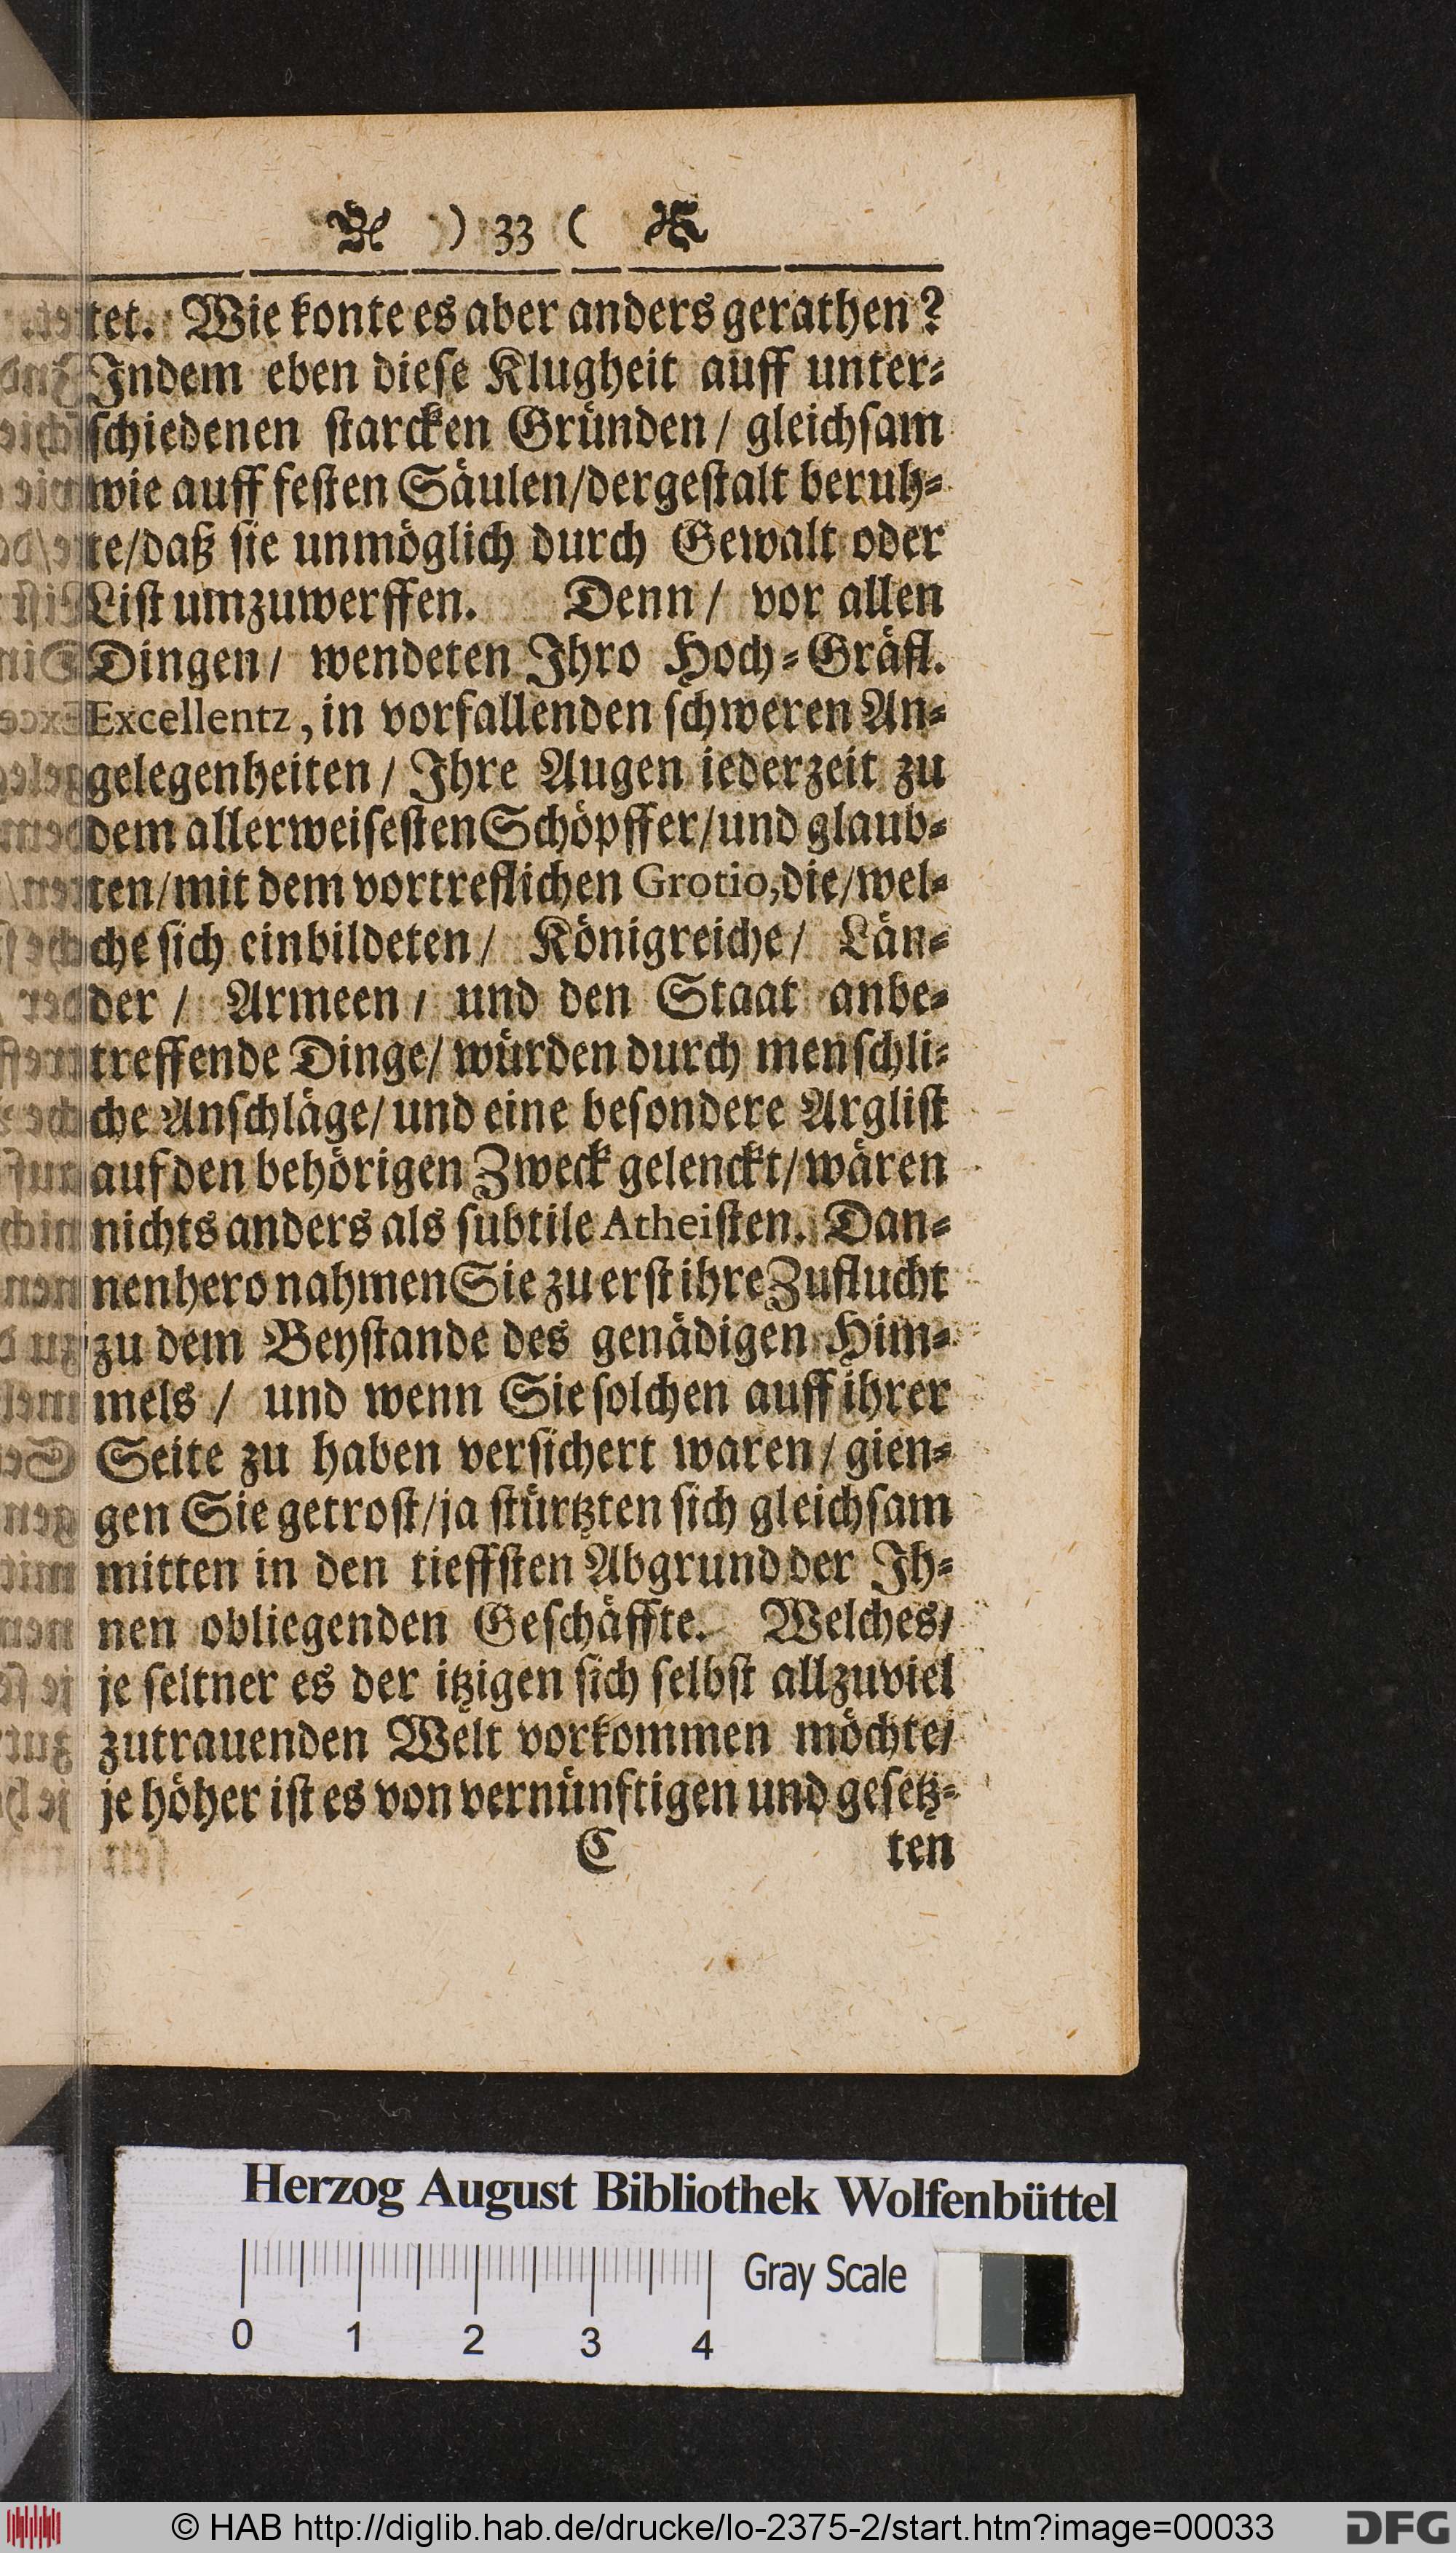 ) 33 (
tet. Wie konte es aber anders gerathen?
Indem eben dieſe Klugheit auff unter⸗
ſchiedenen ſtarcken Gründen / gleichſam
wie auff feſten Säulen/dergeſtalt beruh⸗
te/daß ſie unmöglich durch Gewalt oder
Liſt umzuwerffen. Denn / vor allen
Dingen/ wendeten Ihro Hoch⸗Gräfl.
Excellentz, in vorfallenden ſchweren An⸗
gelegenheiten / Ihre Augen iederzeit zu
dem allerweiſeſten Schöpffer/und glaub⸗
ten/mit dem vortreflichen Grotio, die/wel⸗
che ſich einbildeten / Königreiche / Län⸗
der / Armeen / und den Staat anbe⸗
treffende Dinge/ würden durch menſchli⸗
che Anſchläge/ und eine beſondere Argliſt
auf den behörigen Zweck gelenckt/ wären
nichts anders als ſubtile Atheiſten. Dan⸗
nenhero nahmen Sie zu erſt ihre Zuflucht
zu dem Beyſtande des genädigen Him⸗
mels / und wenn Sie ſolchen auff ihrer
Seite zu haben verſichert waren / gien⸗
gen Sie getroſt/ja ſtürtzten ſich gleichſam
mitten in den tieffſten Abgrund der Ih⸗
nen obliegenden Geſchäffte. Welches/
je ſeltner es der itzigen ſich ſelbſt allzuviel
zutrauenden Welt vorkommen möchte/
je höher iſt es von vernünftigen und geſetz⸗
C ten
Herzog August Bibliothek Wolfenbüttel
Gray Scale
0 1 2 3 4
© HAB http://diglib.hab.de/drucke/lo-2375-2/start.htm?image=00033
DFG